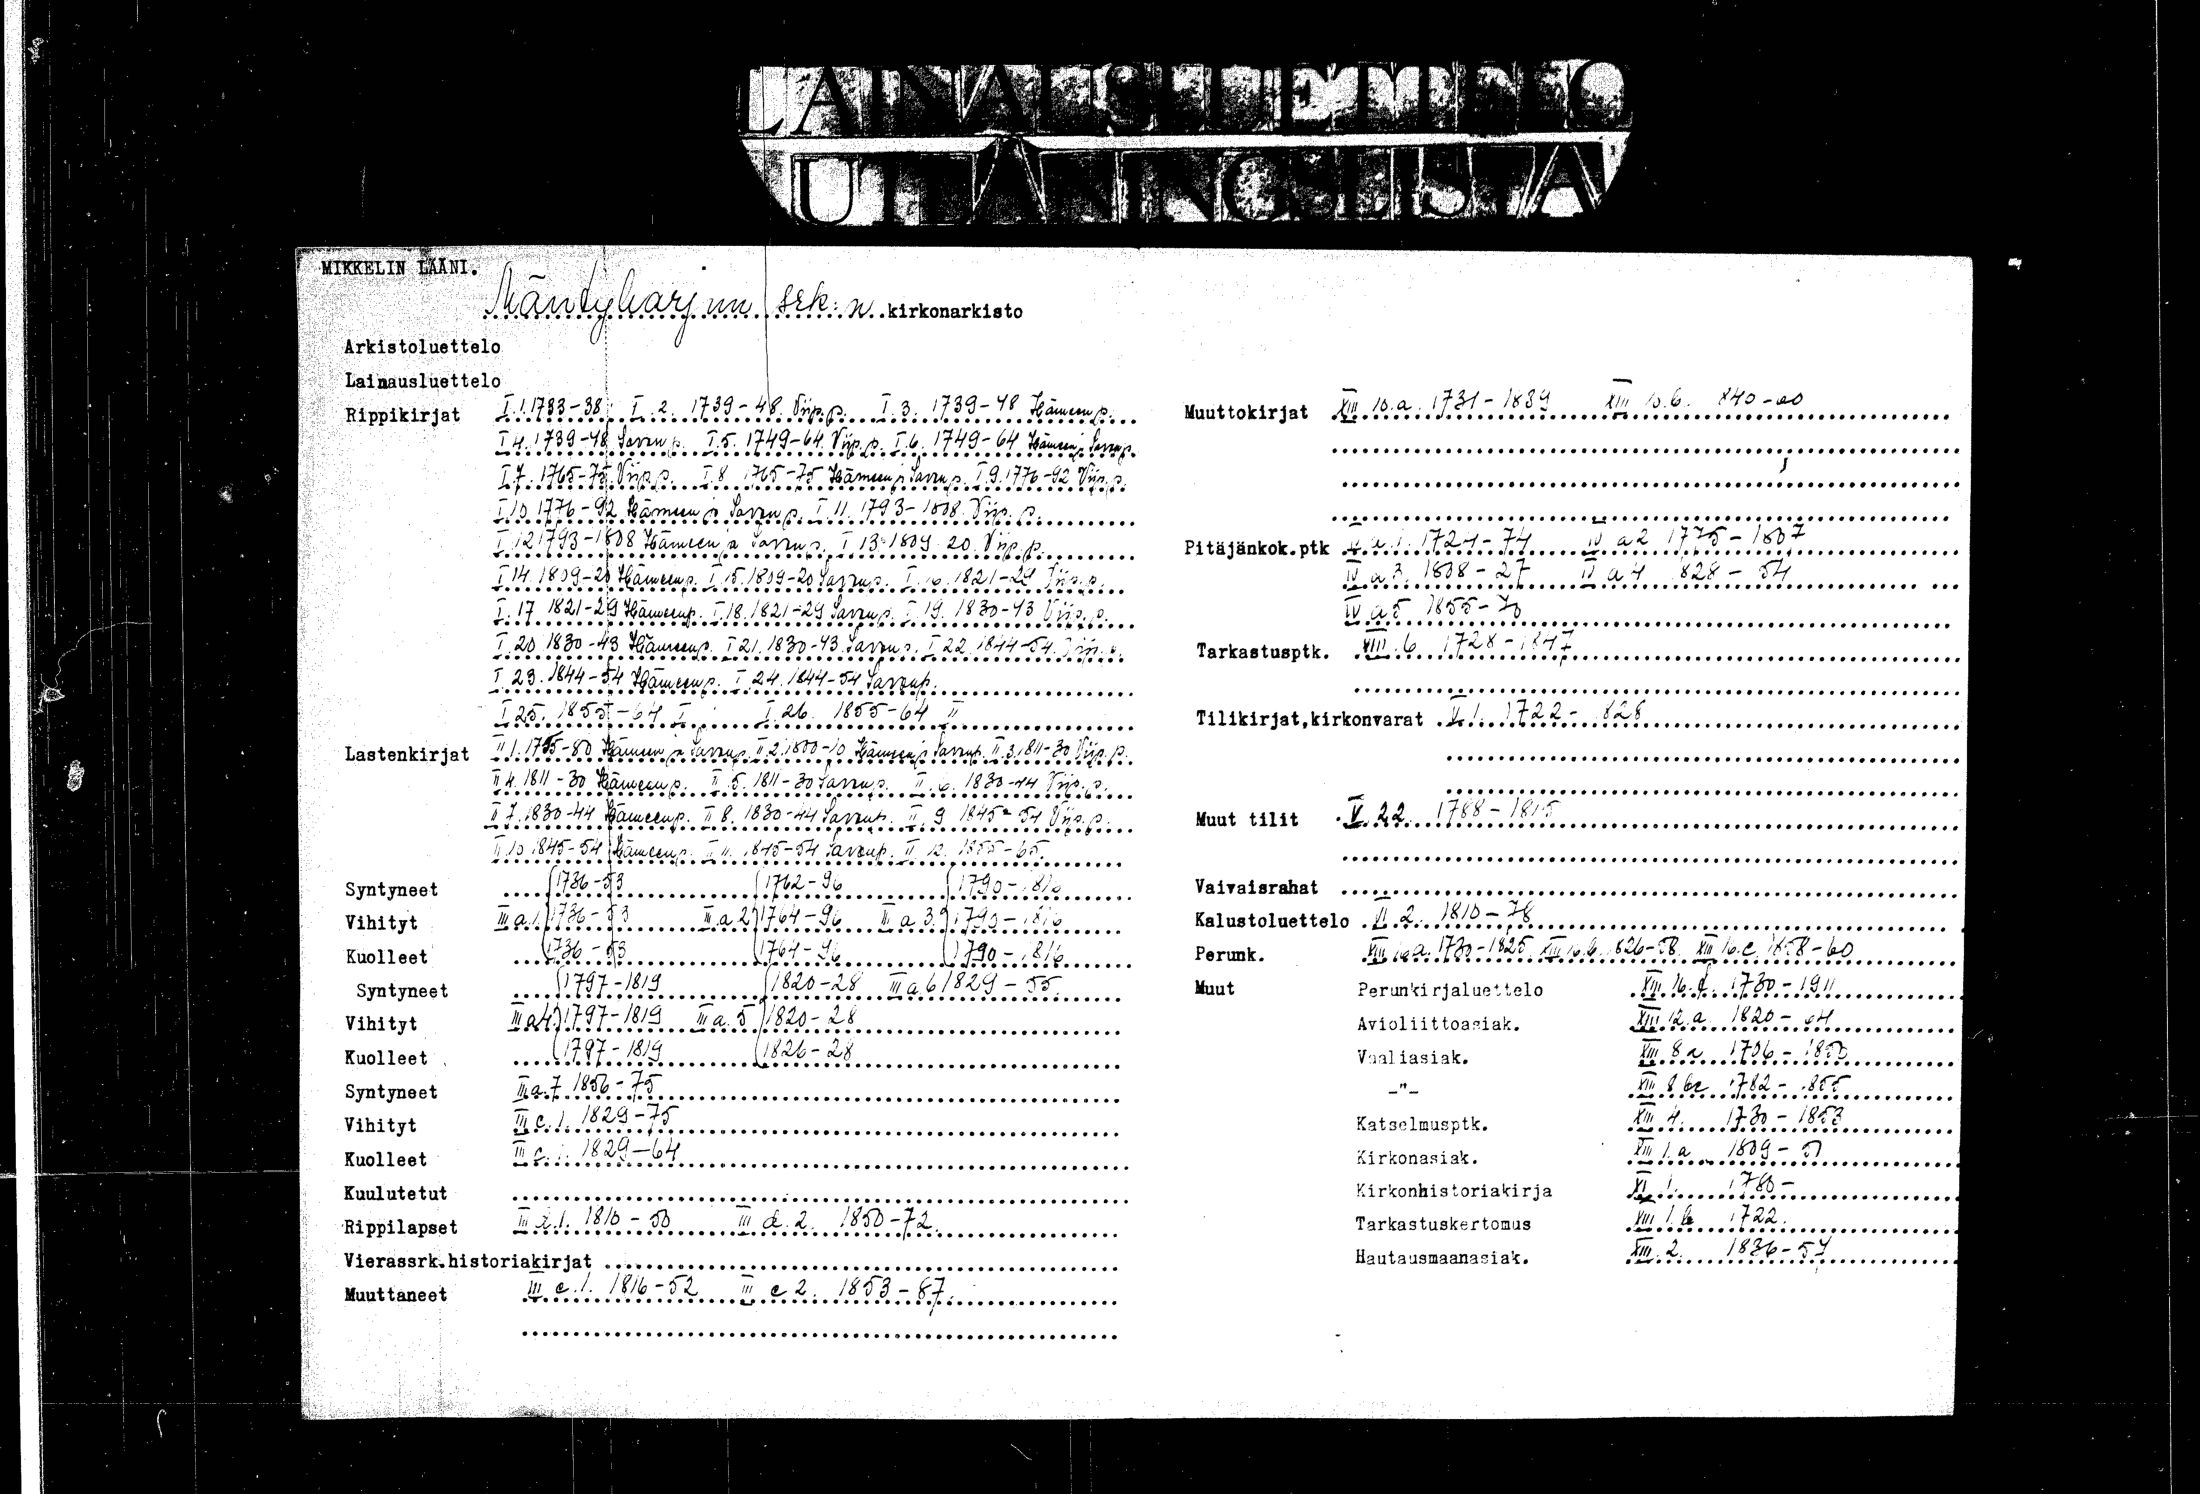 LAINAUSLUETTELO
UTLÅNINGSLISTA
MIKKELIN LÄÄNI.
Mäntyharjun srk:n kirkonarkisto
Arkistoluettelo
Lainausluettelo
Rippikirjat I.1.1733-38 I.2. 1739-48. Viip.p. I.3. 1739-48 Hämeen p.
I.4.1739-48 Savon p. I.5. 1749-64. Viip.p. I.6. 1749-64 Hämeen ja Savon p.
I.7. 1765-75 Viip.p. I.8 1765-75 Hämeen ja Savon p. I.9.1776-92 Viip.p.
I.10.1776-92 Hämeen ja Savon p. I.11. 1793-1808. Viip.p.
I.12 1793-1808 Hämeen ja Savon p. I 13.1809-20. Viip.p.
I 14.1809-20 Hämeen p. I.15.1809-20 Savon p. I.16.1821-29 Viip.p.
I.17 1821-29 Hämeen p. I.18.1821-29 Savon p. I.19. 1830-43 Viip.p.
I.20.1830-43 Hämeen p. I 21.1830-43. Savon p. I 22.1844-54. Viip.p.
I 23.1844-54 Hämeen p. I.24.1844-54 Savon p.
I 25. 1855-64 I I.26. 1855-64 II
Lastenkirjat II 1. -80 Hämeen ja Savon p. II.2.1800-10 Hämeen ja Savon p. II.3.1811-30 Viip.p.
II 4.1811-30 Hämeen p. II.5.1811-30 Savon p. II.6. 1830-44 Viip.p.
II 7.1830-44 Hämeen p. II 8. 1830-44 Savon p. II.9 1845-54 Viip.p.
II.10 1845-54 Hämeen p. II 11. 1845-54 Savon p. II 12. 1855-65.
Syntyneet 1736-53 1762-96 1790-1816
Vihityt III a.1. 1736-53 III.a 2. 1764-96 III a 3. 1790-1816
Kuolleet 1736-53 1764-96 1790-1816
Syntyneet 1797-1819 1820-28 III a.6 1829-55.
Vihityt III a4. 1797-1819 III a.5. 1820-28
Kuolleet 1797-1819 1826-28
Syntyneet III a.7 1856-75
Vihityt III c.1. 1829-75
Kuolleet III 1829-64
Kuulutetut
Rippilapset III d.1. 1810-50 III d.2. 1850-72.
Vierassrk.historiakirjat
Muuttaneet III e.1. 1816-52 III e 2. 1853-67.
Muuttokirjat XIII 10.a. 1731-1839 XIII 10.b. 1840-60
Pitäjänkok.ptk IV.a.1. 1724-74 IV a2 1775-1807
IV a 3. 1808-27 IV a 4 1828-54
IV a 5 1855-70
Tarkastusptk. XIII.6. 1728-1847
Tilikirjat,kirkonvarat V.1. 1722-1828
Muut tilit V.22. 1788-1815
Vaivaisrahat
Kalustoluettelo VI.2. 1810-78
Perunk. XIII 16.a. 1730-1825. XIII 16.b. 1826-58. XIII 16.c. 1858-60
Muut Perunkirjaluettelo XIII.16.d. 1730-1911
Avioliittoasiak. XIII 12.a. 1820-64
Vaaliasiak. XIII 8 a 1706-1850
-"- XIII 8 bc 1782-1855
Katselmusptk. XIII 4. 1730-1853
Kirkonasiak. XIII 1.a 1809-51
Kirkonhistoriakirja XI.1. 1780-
Tarkastuskertomus XIII.1.b 1722.
Hautausmaanasiak. XIII.2. 1836-57